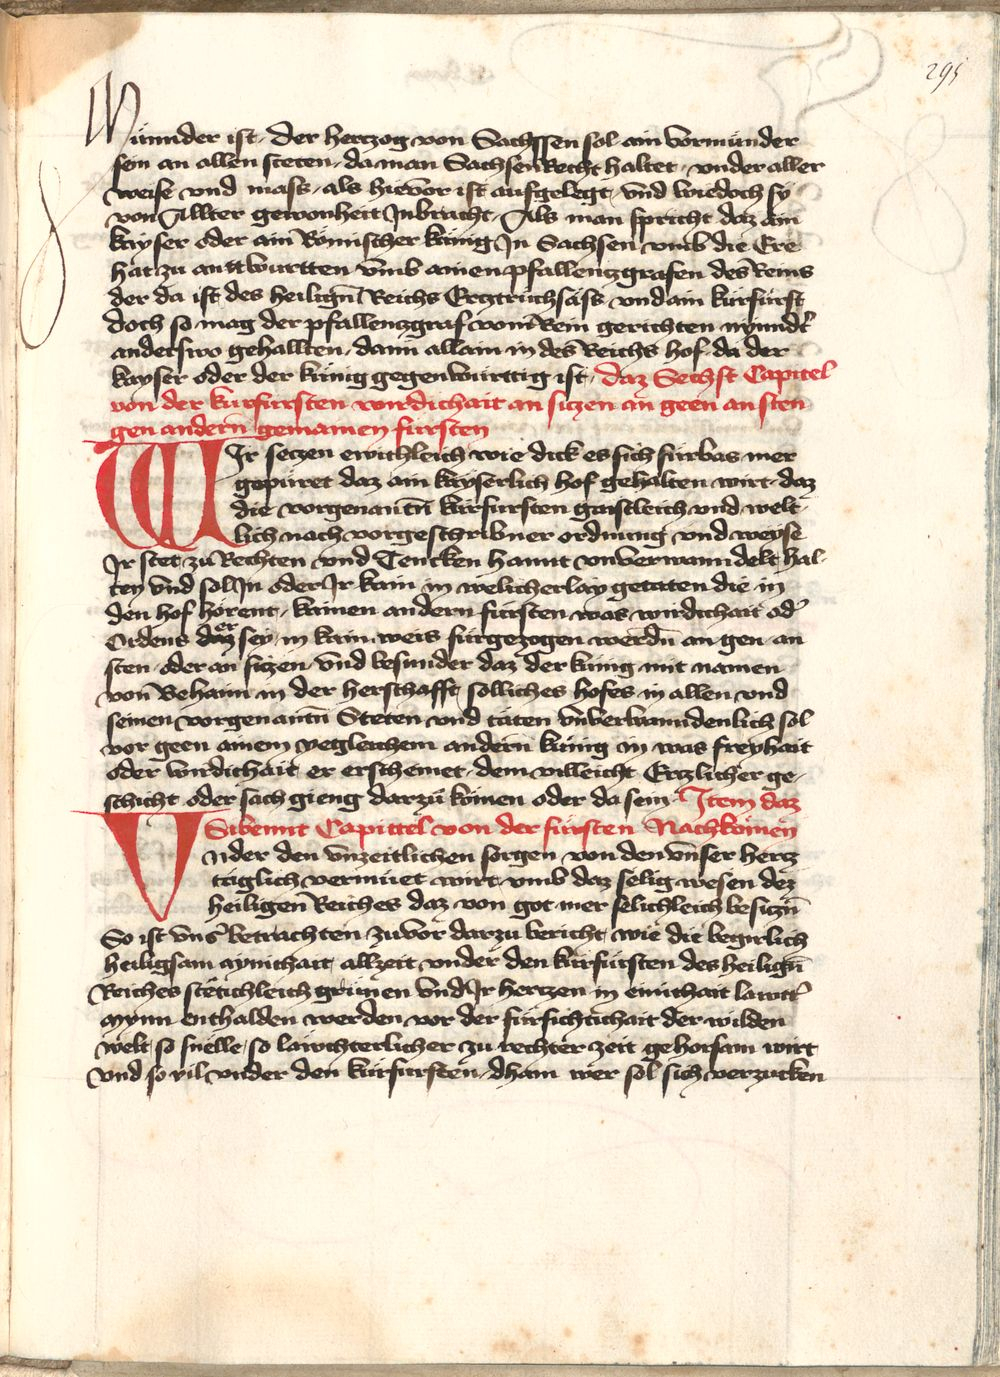 295
Münnder ist, der hertzog von Sachssen sol ain vormünder
sein an allen steten, da man Sachsen Recht haltet, vnder aller
weise vnd mass, als hieuor ist aufgelegt, vnd wiedoch sy
von Allter gewonheit Jnbracht, Als man spricht daz ain
kayser oder ain Römischer künig Jn Sachsen vmb die Ere
hat zu anttwurtten vmb ainen pfallentzgrafen des Reins
der da ist des heilign̄ Reichs Ertztruchsäss vnd ain kurfürst
doch so mag der pfallenczgraf vom Rein gerichten nynndt'
anderswo gehallten, dann allain in des Reichs hof da der
kayser oder der künig gegenwurttig ist, daz Sechst Capitel
von der kurfursten wirdichait an siczen an geen an sten
gen andern gemainen fürsten
Wir seczen ewichleich wie dick es sich fürbas mer
gepüret daz ain kayserlich hof gehalten wirt, daz
die vorgenantn̄ kürfursten gaistleich vnd welt,
lich nach vorgeschribner ordnung vnd weyse
Jr stet zu Rechten vnd Tencken hannt vnverwanndelt hal,
ten vnd sol Jn oder Jr kain in welicherlay getaten die in
den hof hörent, kainen andern fürsten was wirdichait od'
Ordens daz er sey, in kain weis fürgezogen werdn̄ an gen an
sten, oder an siczen, vnd besunder daz der künig mit namen
von Behaim in der herschafft solliches hofes in allen vnd
seinen vorgenantn̄ Steten vnd täten vnverwanndenlich sol
vor geen ainem yegleichem andern künig in was freyhait
oder wirdichait er erscheinet, dem villeicht Etzlicher ge,
schicht oder sach gieng darzu kömen oder da sein, Jtem daz
Sibennt Capittel von der fürsten Nachkömen
Vnder den vnzeitlichen sorgen von den vnser hertz
täglich vermüet wirt, vmb daz sëlig wesen dez
heiligen Reiches daz von got mer selichleich besiczn̄
So ist vns' betrachten zuvor darzu bericht, wie die begirlich
heiligsam aynichait allzeit vnder den kürfürsten des heilign̄
Reiches stëtichleich grünen vnd Jr hertzen in einichait lawtt'
mynn enthalden werden vor der fürsichtichait der wilden
welt, so snelle, so lawchterlicher zu rechter zeit gehorsam wirt
vnd so vil vnder den kürfursten, dhain wer sol sich verzucken